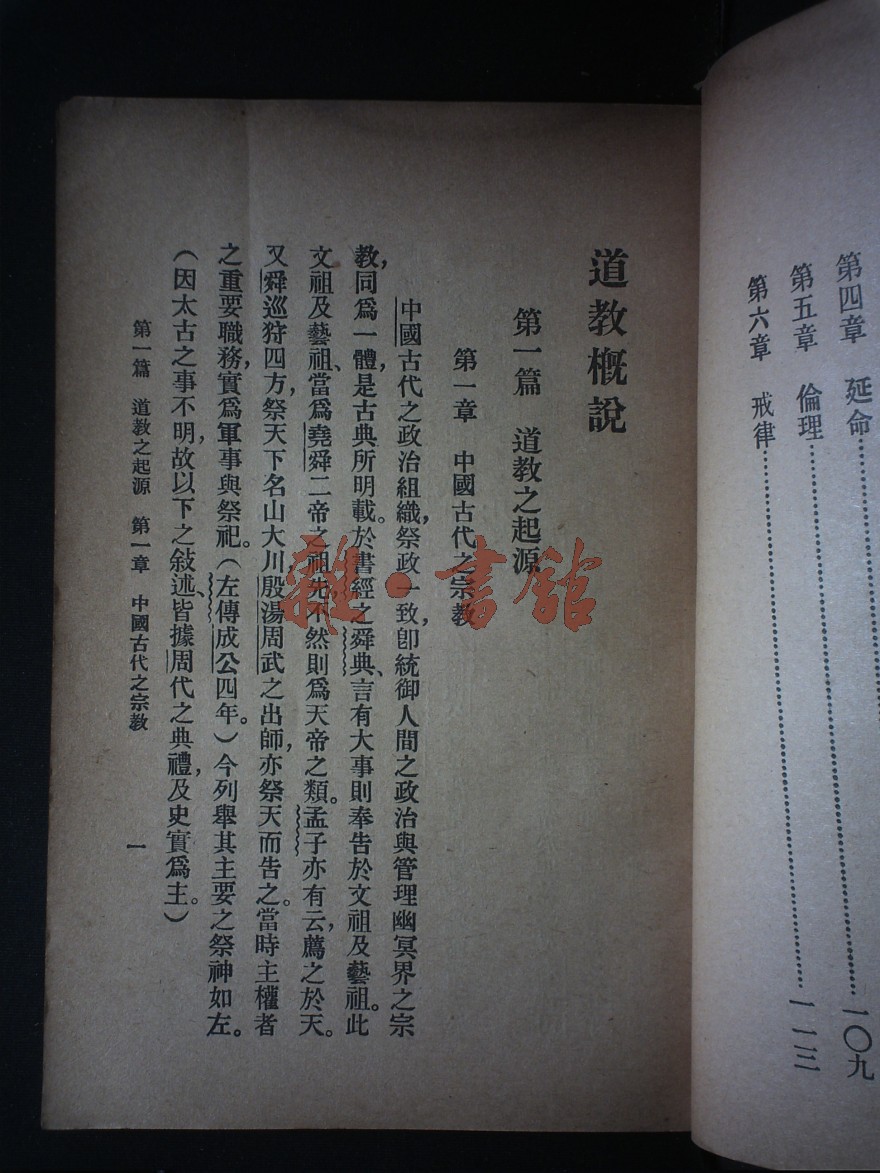 第四章　延命……一〇九
第五章　倫理……一一三
第六章　戒律……一一三
道教概說
第一篇　道教之起源
第一章　中國古代之宗教
中國古代之政治組織，祭政一致，卽統御人間之政治與管理幽冥界之宗
教，同爲一體，是古典所明載。於書經之舜典、言有大事則奉告於文祖及藝祖。此
文祖及藝祖、當爲堯舜二帝之祖先，不然則爲天帝之類。孟子亦有云，薦之於天。
又舜巡狩四方，祭天下名山大川，殷湯周武之出師，亦祭天而告之。當時主權者
之重要職務，實爲軍事與祭祀。（左傳成公四年。）今列舉其主要之祭神如左。
（因太古之事不明，故以下之敍述、皆據周代之典禮，及史實爲主。）
第一篇　道教之起源　第一章　中國古代之宗教　一
雜·書館